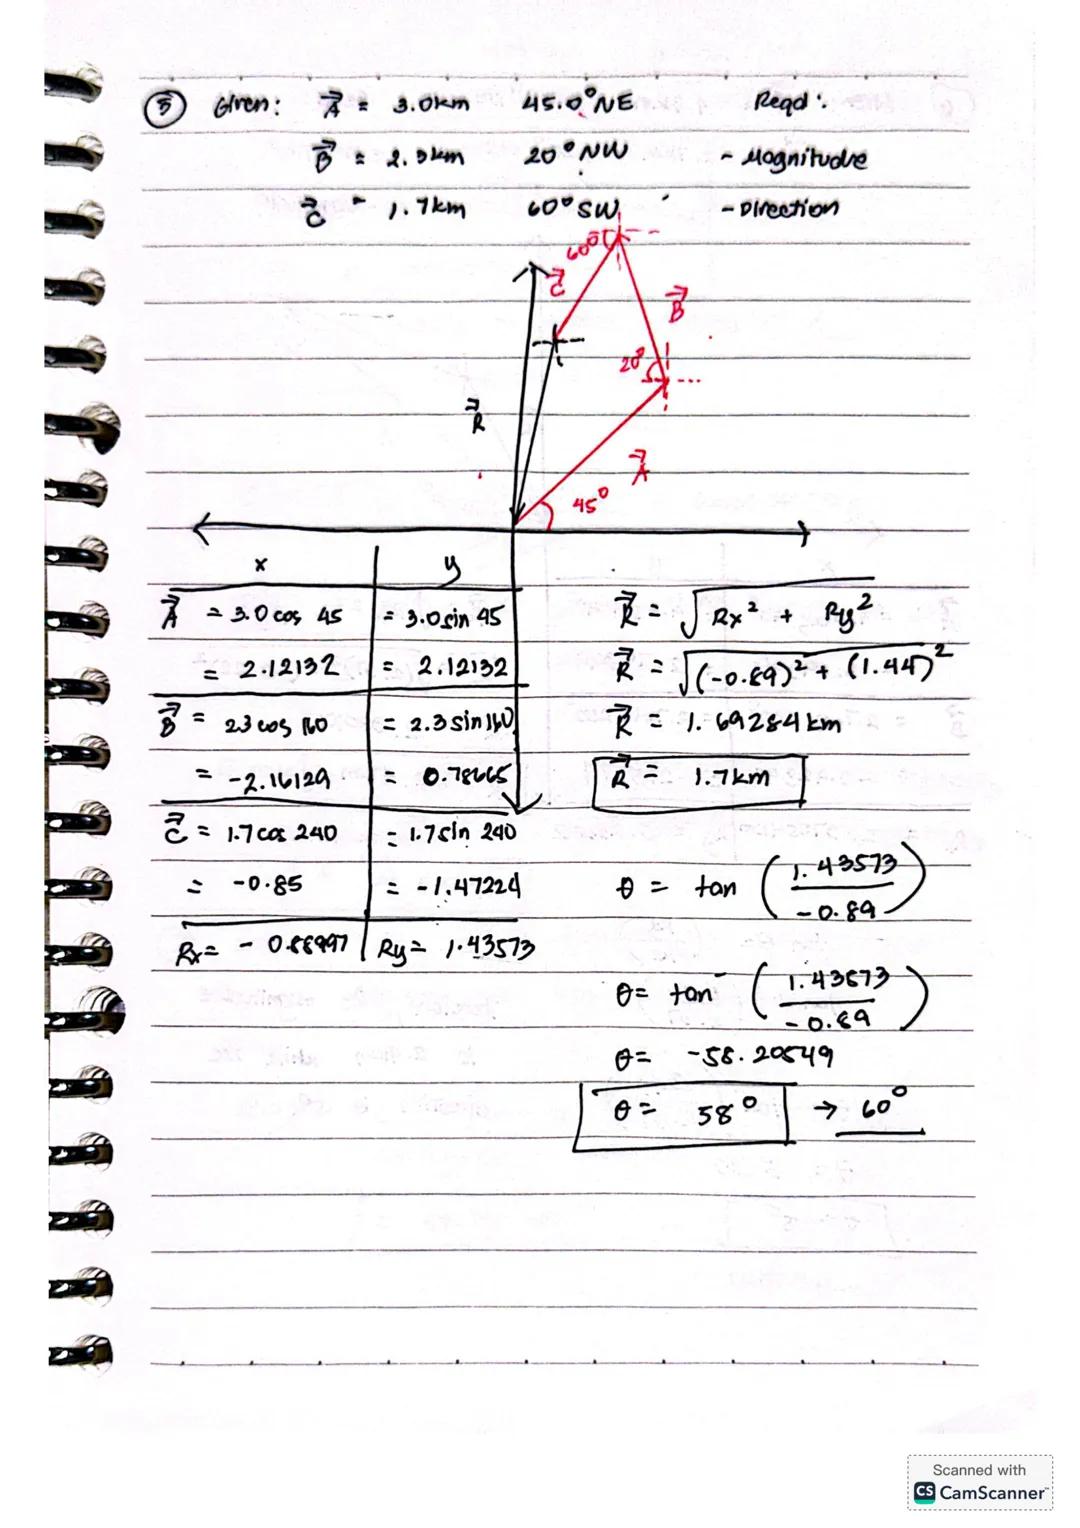 ⑤ Given: A⃗ = 3.0km 45.0° NE Reqd:
B⃗ = 2.3km 20° NW - Magnitude
C⃗ = 1.7km 60° SW - Direction
60°
C⃗
B⃗
20°
R⃗
A⃗
45°
x y
A⃗ = 3.0 cos 45 = 3.0 sin 45
= 2.12132 = 2.12132
B⃗ = 2.3 cos 160 = 2.3 sin 160
= -2.16129 = 0.78665
C⃗ = 1.7 cos 240 = 1.7 sin 240
= -0.85 = -1.47224
Rx = -0.88997 Ry = 1.43573
R⃗ = √Rx² + Ry²
R⃗ = √(-0.89)² + (1.44)²
R⃗ = 1.69284 km
R⃗ = 1.7km
θ = tan (1.43573 / -0.89)
θ = tan⁻ (1.43573 / -0.89)
θ = -58.20549
θ = 58° → 60°
Scanned with
CS CamScanner™